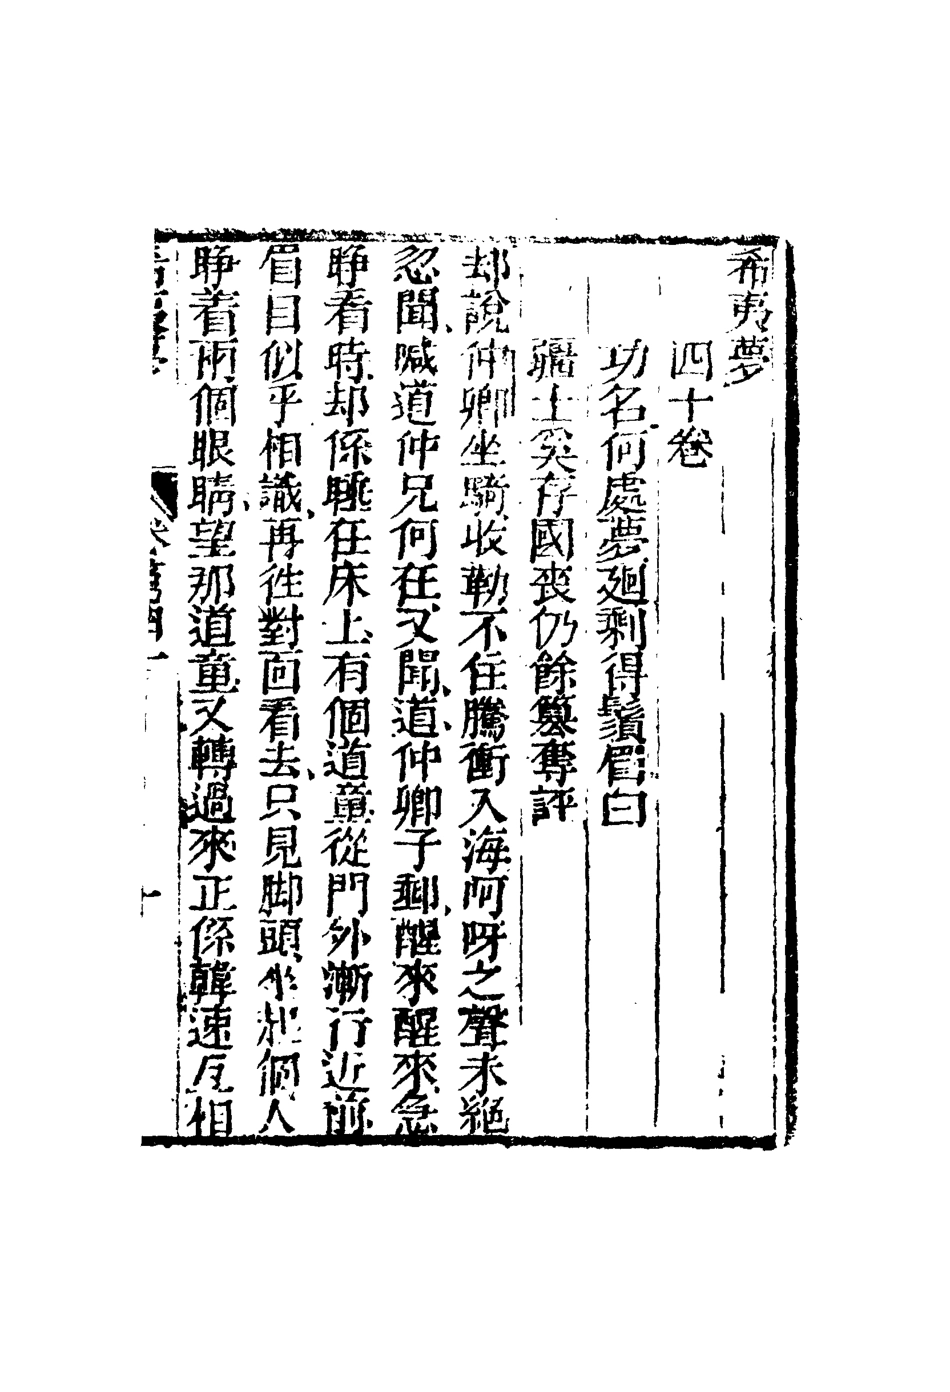 希夷夢
四十卷
功名何處夢廻剩得鬚眉白
疆土奚存國喪仍餘篡奪評
却說仲卿坐騎收勒不住騰衝入海阿呀之聲未絕
忽聞喊道仲兄何在又聞道仲卿子郵醒來醒來急
睁看時却係睡在床上有個道童從門外漸行近前
眉目似乎相識再徃對面看去只見脚頭坐起個人
睁着兩個眼睛望那道童又轉過來正係韓速互相
希夷夢 卷第四十